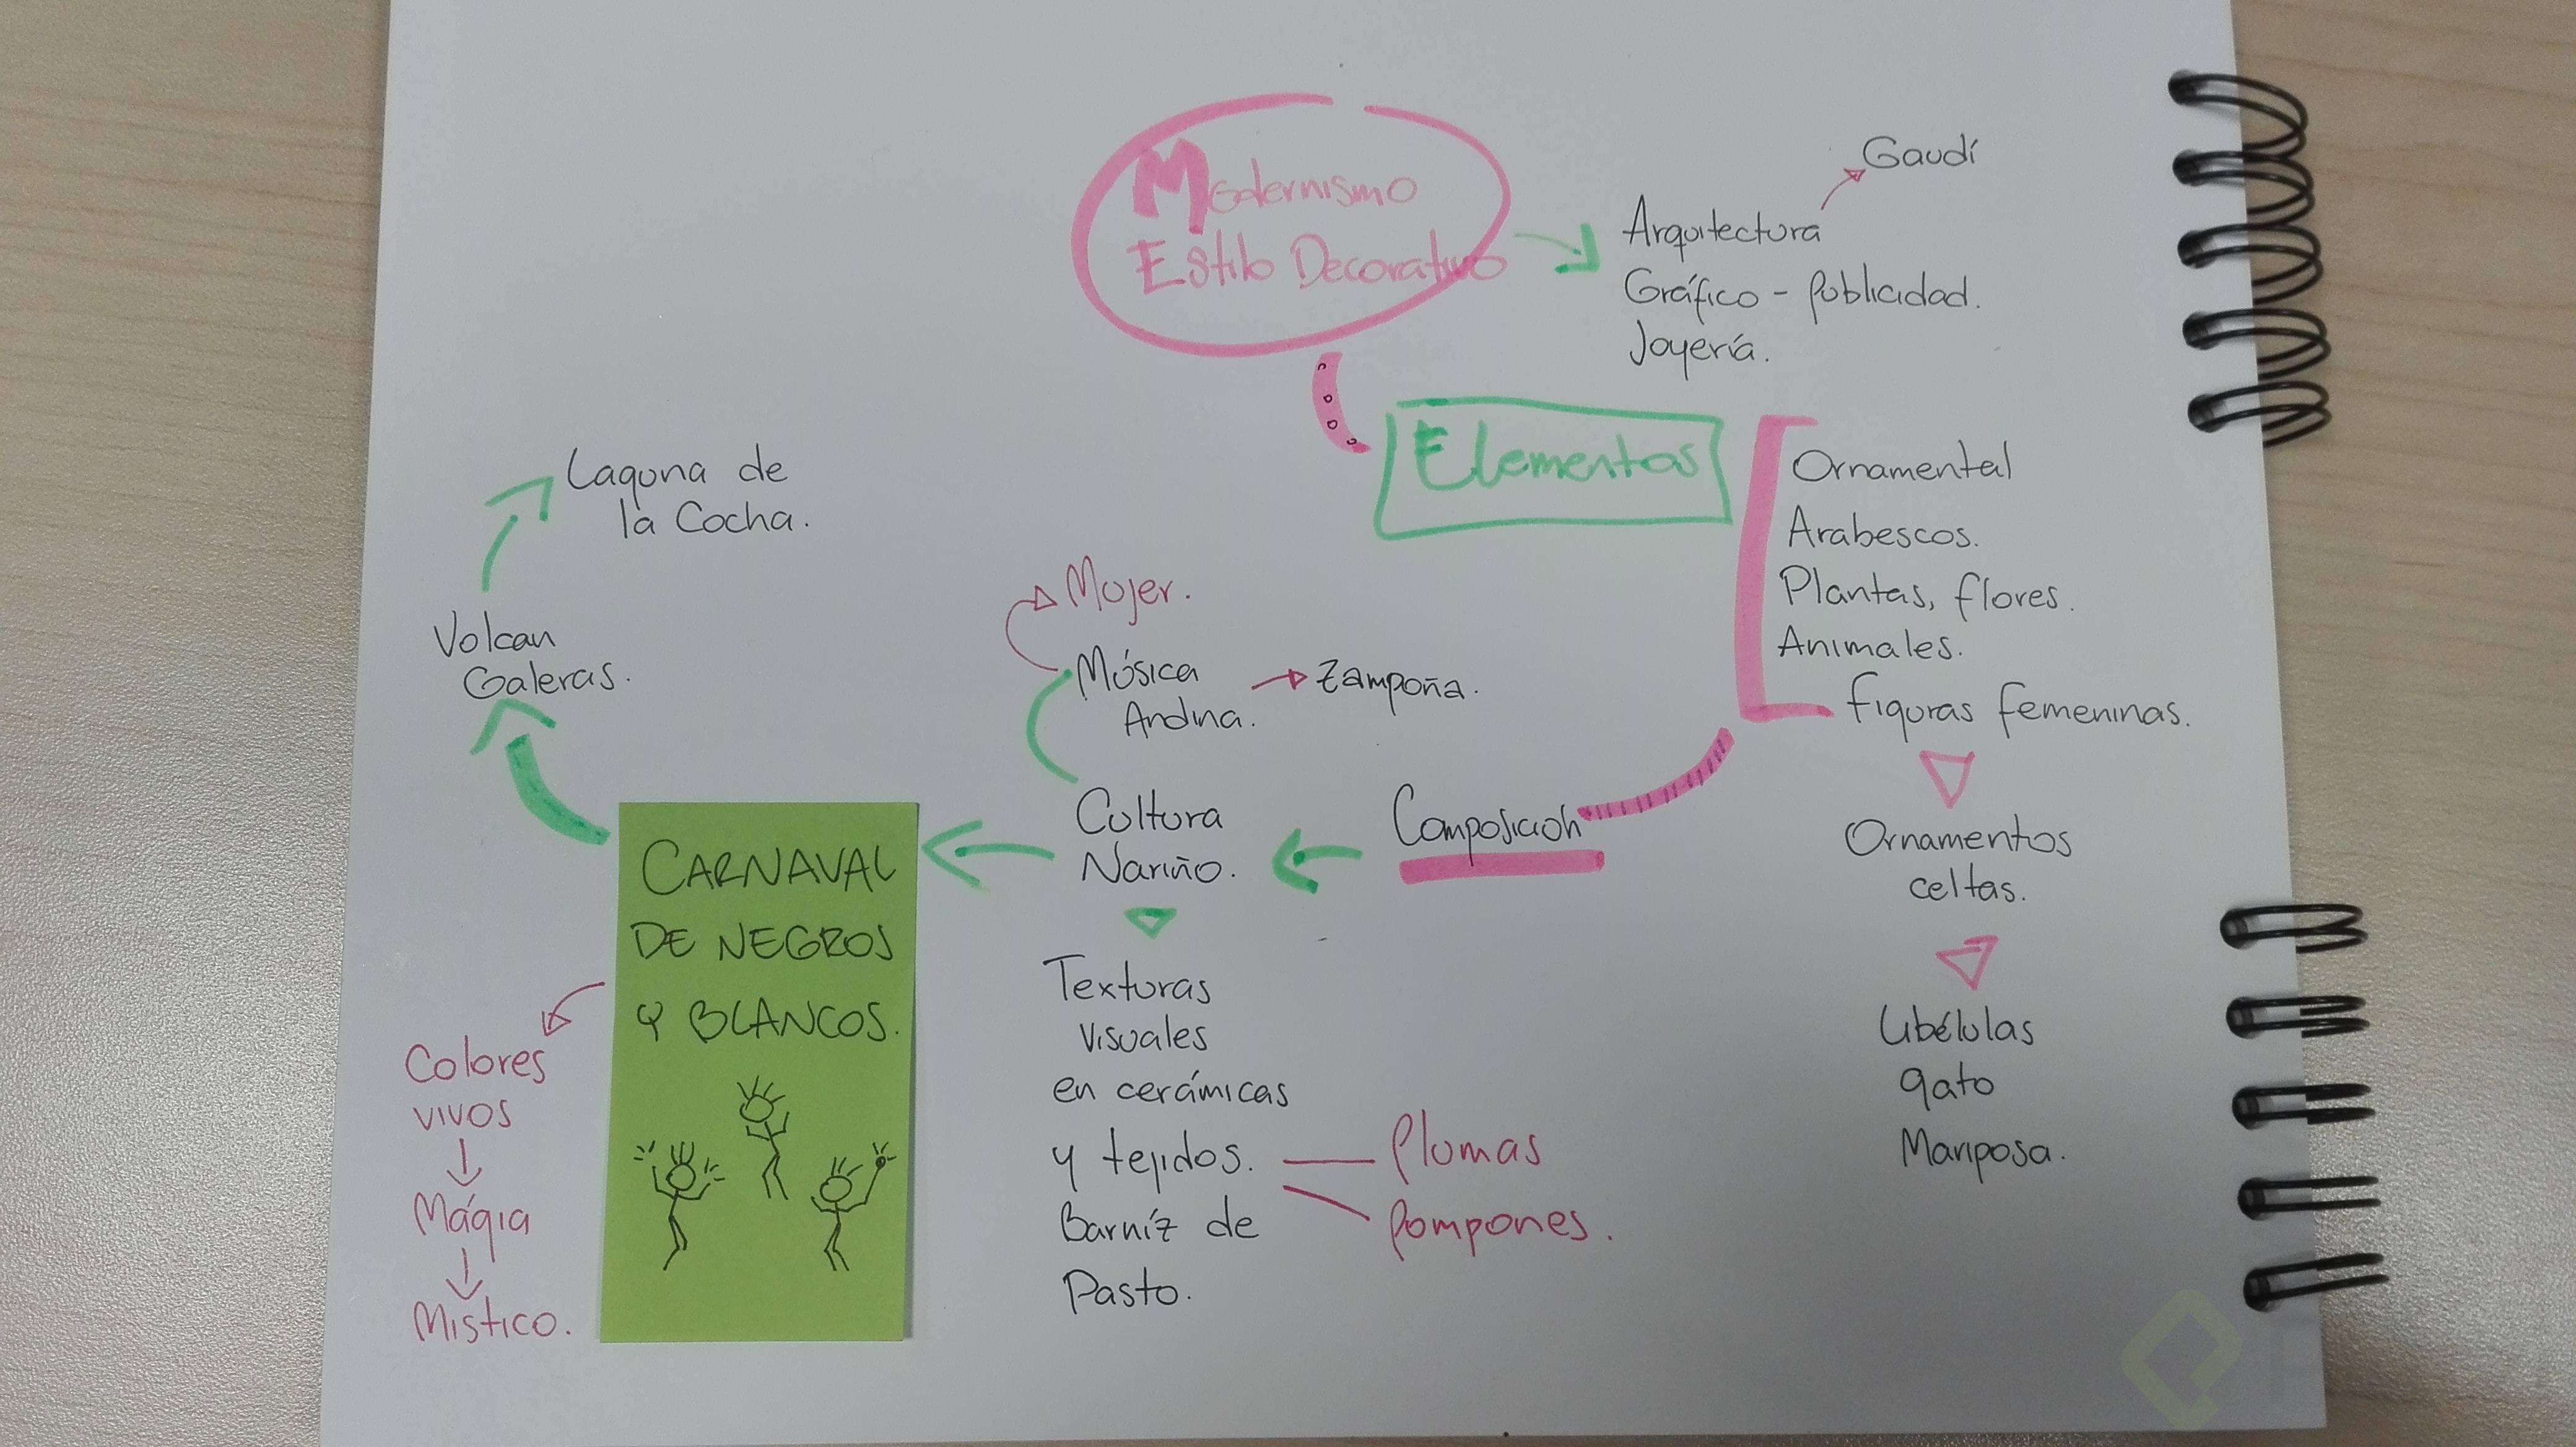 Modernismo
Estilo Decorativo
Gaudí
Arquitectura
Gráfico - Publicidad.
Joyería.
Elementos
Ornamental
Arabescos.
Plantas, flores.
Animales.
figuras femeninas.
Ornamentos
celtas.
Libélulas
gato
Mariposa.
Composición
Cultura
Nariño.
Música
Andina.
Zampoña.
Mujer.
Texturas
visuales
en cerámicas
y tejidos.
Barníz de
Pasto.
Plumas
Pompones.
CARNAVAL
DE NEGROS
Y BLANCOS.
Volcan
Galeras.
Laguna de
la Cocha.
Colores
vivos
Mágia
Mistico.